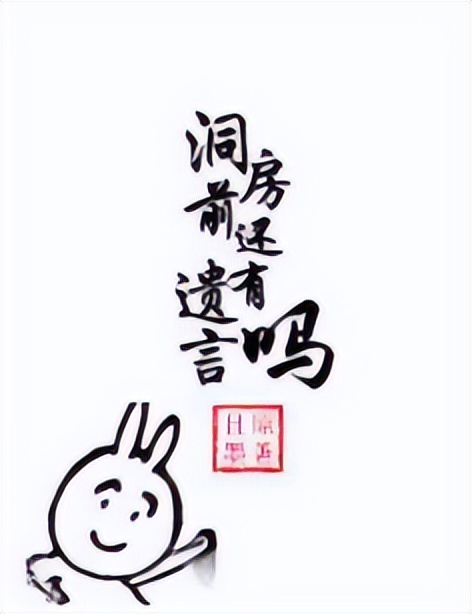 洞房前还有遗言吗